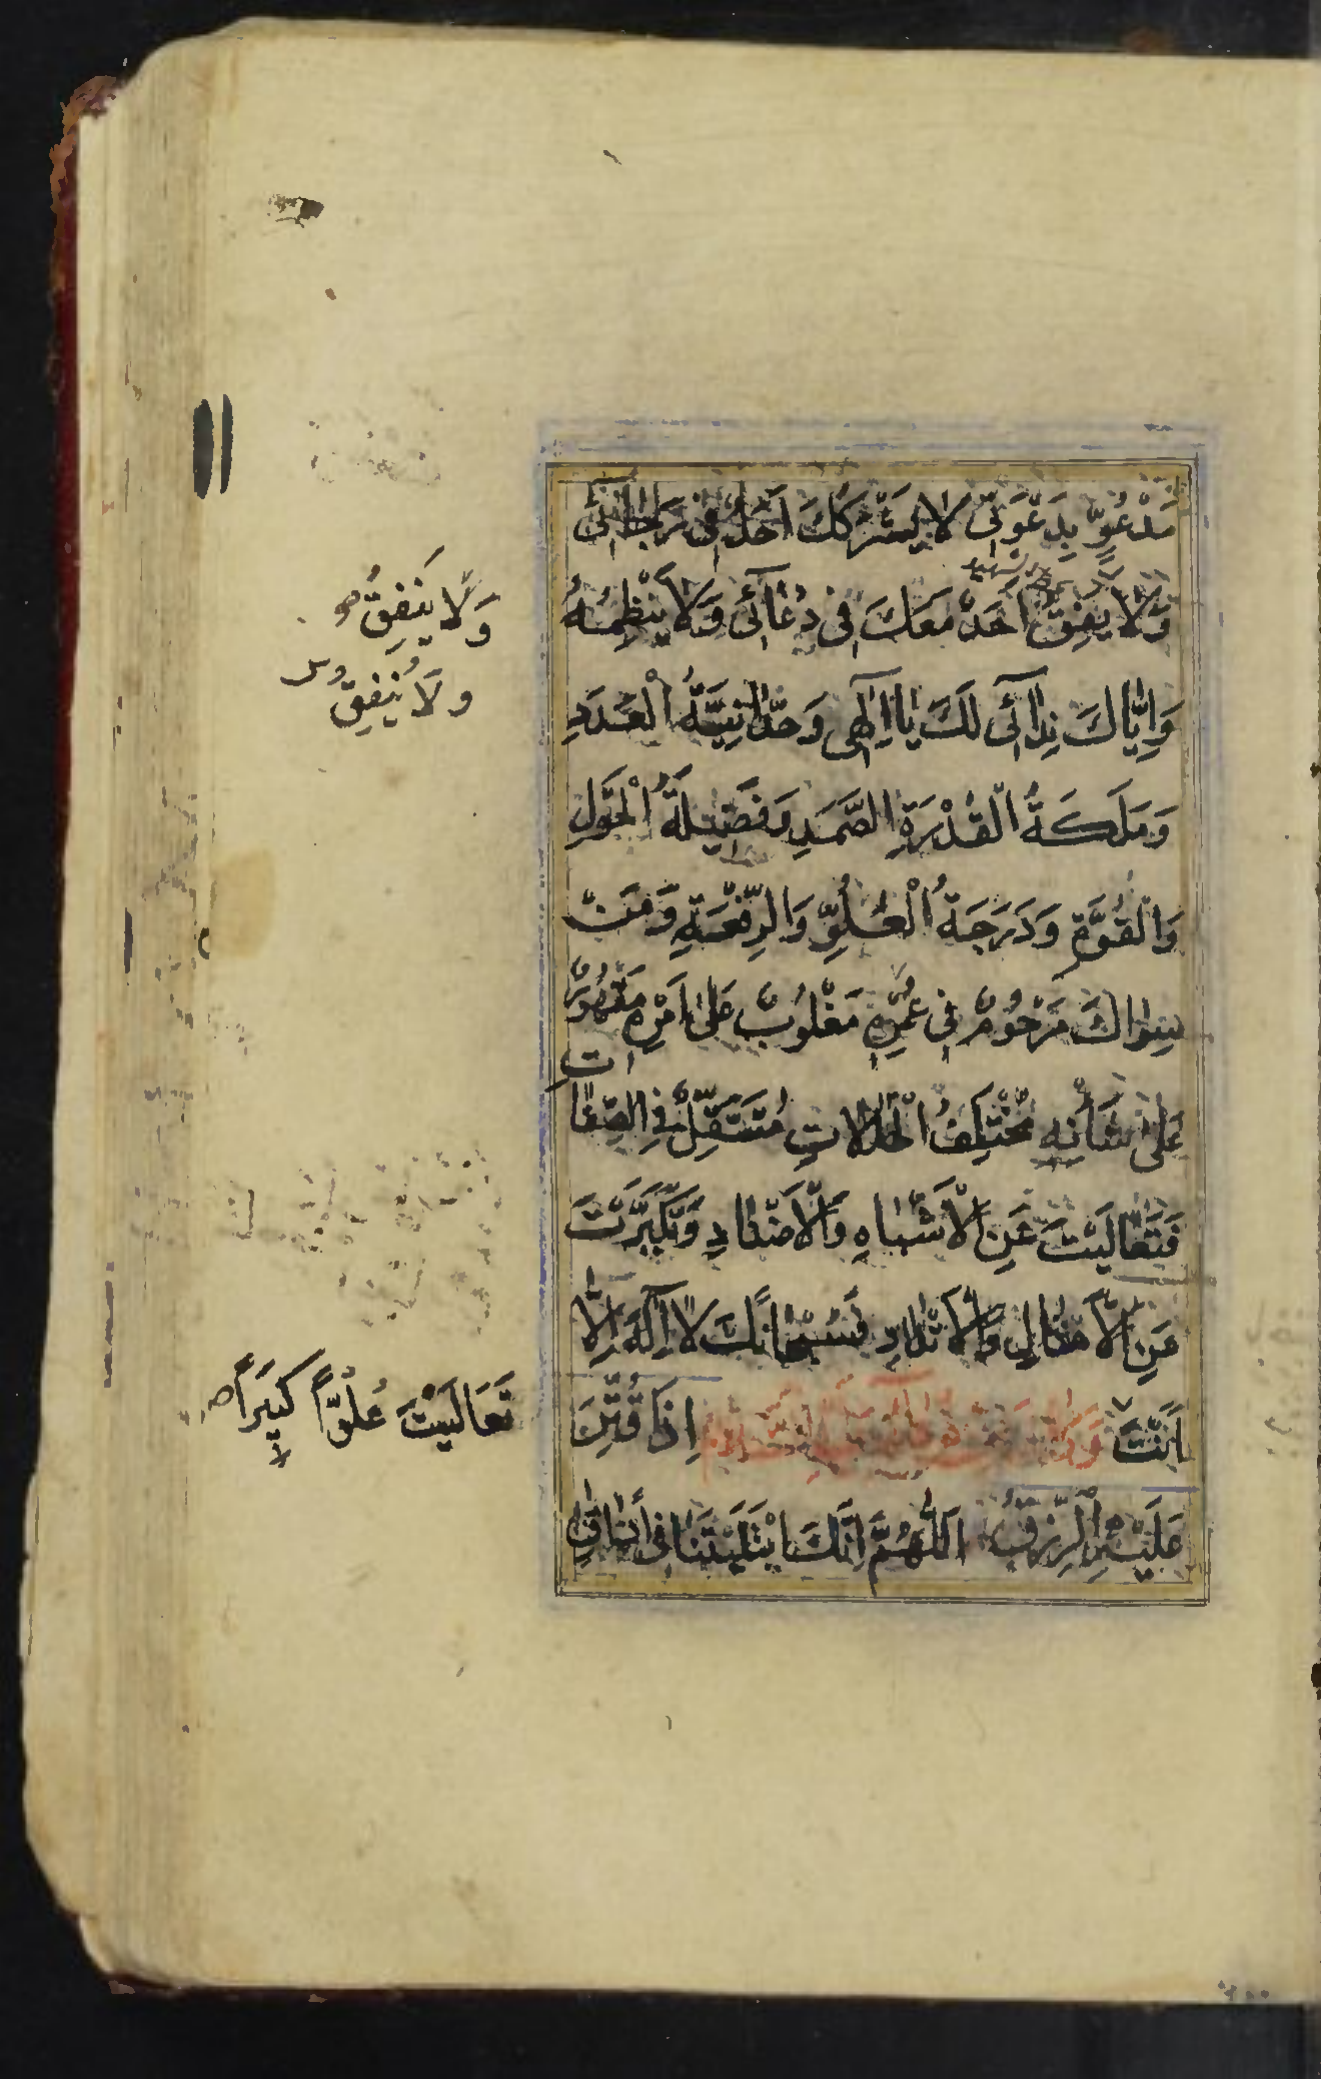 مَدْعُوٍّ بِدَعْوَتِي لَا يَشْرَكُكَ أَحَدٌ فِي رَجَائِي
وَلَا يَفِقُ أَحَدٌ مَعَكَ فِي دُعَائِي وَلَا يَنْظِمُهُ
وَإِيَّاكَ نِدَائِي لَكَ يَا إِلٰهِي وَحْدَانِيَّةُ الْعَدَدِ
وَمَلَكَةُ الْقُدْرَةِ الصَّمَدِ وَفَضِيلَةُ الْحَوْلِ
وَالْقُوَّةِ وَدَرَجَةُ الْعُلُوِّ وَالرِّفْعَةِ وَمَنْ
سِوَاكَ مَرْحُومٌ فِي عُمُرِهِ مَغْلُوبٌ عَلَى أَمْرِهِ مَقْهُورٌ
عَلَى شَأْنِهِ مُخْتَلِفُ الْحَالَاتِ مُتَنَقِّلٌ فِي الصِّفَاتِ
فَتَعَالَيْتَ عَنِ الْأَشْبَاهِ وَالْأَضْدَادِ وَتَكَبَّرْتَ
عَنِ الْأَمْثَالِ وَالْأَنْدَادِ فَسُبْحَانَكَ لَا إِلٰهَ إِلَّا
أَنْتَ وَكَانَ مِنْ دُعَائِهِ عَلَيْهِ السَّلَامُ إِذَا قُتِّرَ
عَلَيْهِ الرِّزْقُ اَللّٰهُمَّ إِنَّكَ ابْتَلَيْتَنَا فِي أَرْزَاقِ
وَلَا يَنْفِقُ
وَلَا يُنْفِقُ
تَعَالَيْتَ عُلُوًّا كَبِيرًا